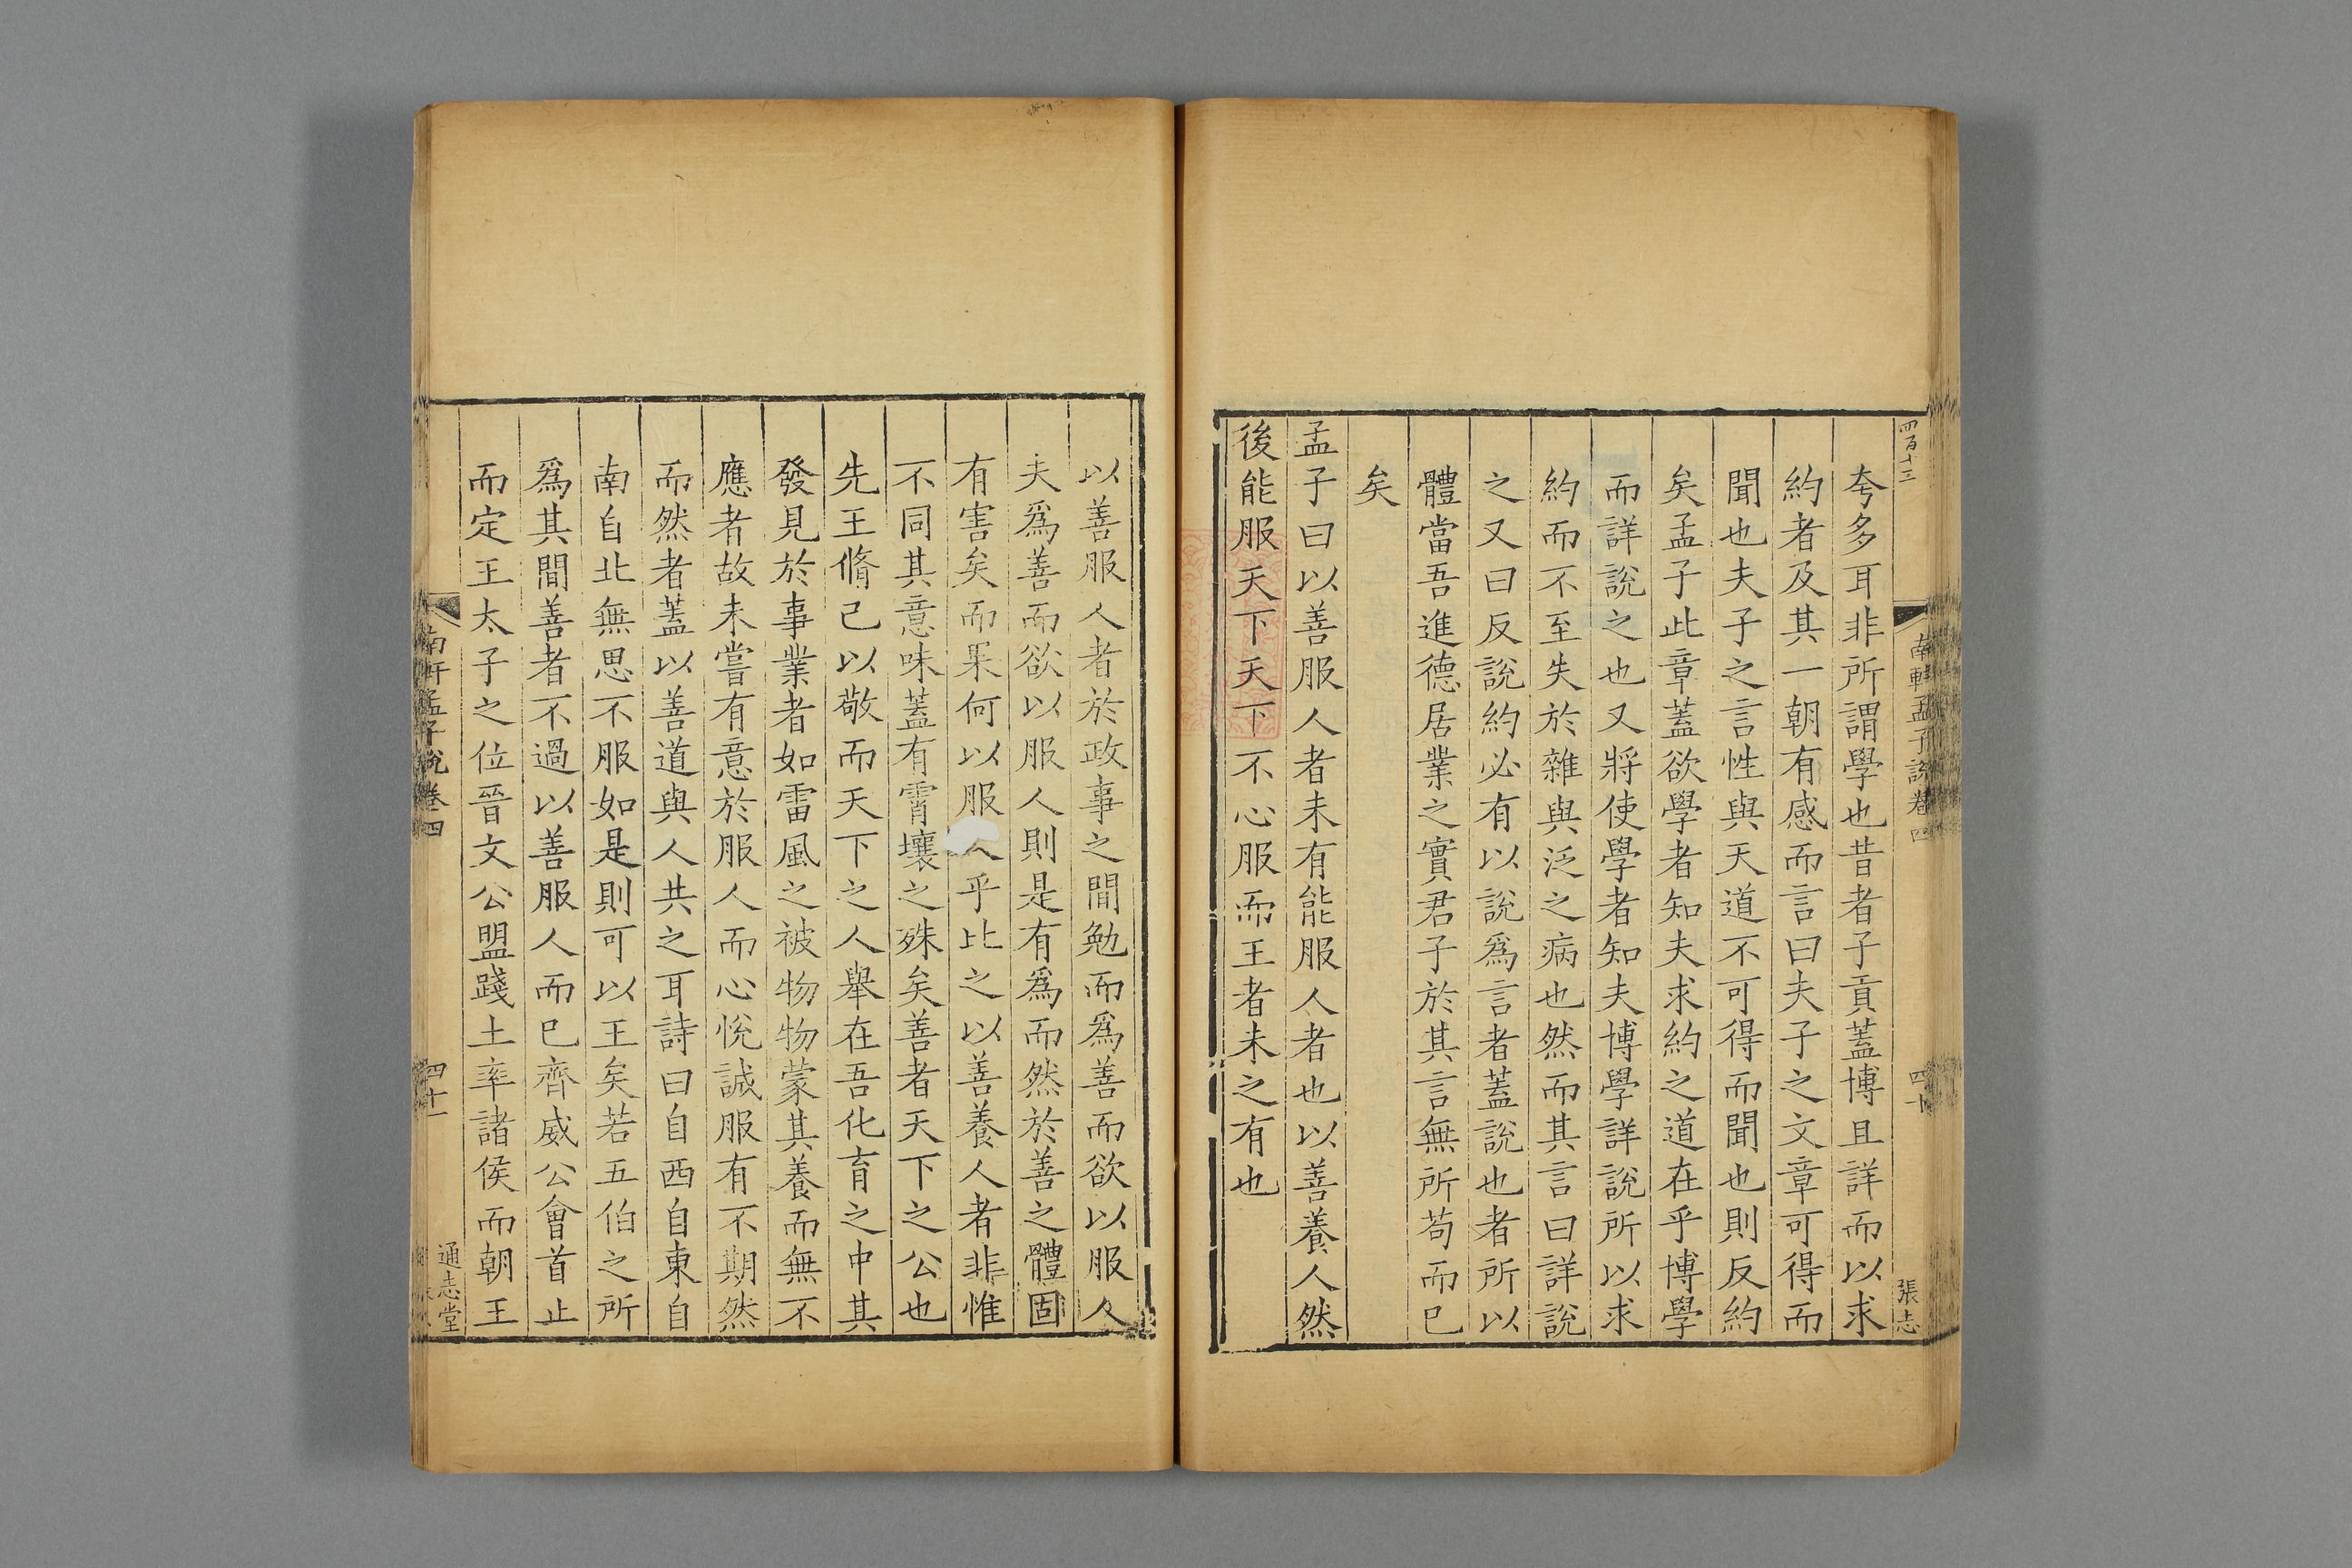 四百十三
南軒孟子說卷四
四十
張志
夸多耳非所謂學也昔者子貢蓋博且詳而以求
約者及其一朝有感而言曰夫子之文章可得而
聞也夫子之言性與天道不可得而聞也則反約
矣孟子此章蓋欲學者知夫求約之道在乎博學
而詳說之也又將使學者知夫博學詳說所以求
約而不至失於雜與泛之病也然而其言曰詳說
之又曰反說約必有以說爲言者蓋說也者所以
體當吾進德居業之實君子於其言無所苟而已
矣
孟子曰以善服人者未有能服人者也以善養人然
後能服天下天下不心服而王者未之有也
以善服人者於政事之間勉而爲善而欲以服人
夫爲善而欲以服人則是有爲而然於善之體固
有害矣而果何以服人乎比之以善養人者非惟
不同其意味蓋有霄壤之殊矣善者天下之公也
先王脩己以敬而天下之人舉在吾化育之中其
發見於事業者如雷風之被物物蒙其養而無不
應者故未嘗有意於服人而心悅誠服有不期然
而然者蓋以善道與人共之耳詩曰自西自東自
南自北無思不服如是則可以王矣若五伯之所
爲其間善者不過以善服人而已齊威公會首止
而定王太子之位晉文公盟踐土率諸侯而朝王
南軒孟子說卷四
四十一
通志堂